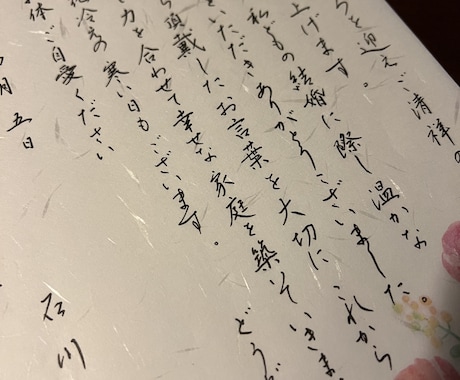 迎え ご清祥の
上げます。
私どもの結婚に際し温かな
をいただきありがとうございました
ら頂戴したお言葉を大切にこれから
力を合わせて幸せな家庭を築いていきま
冷えの寒い日もございます。どうぞ
体ご自愛ください
月五日
石川